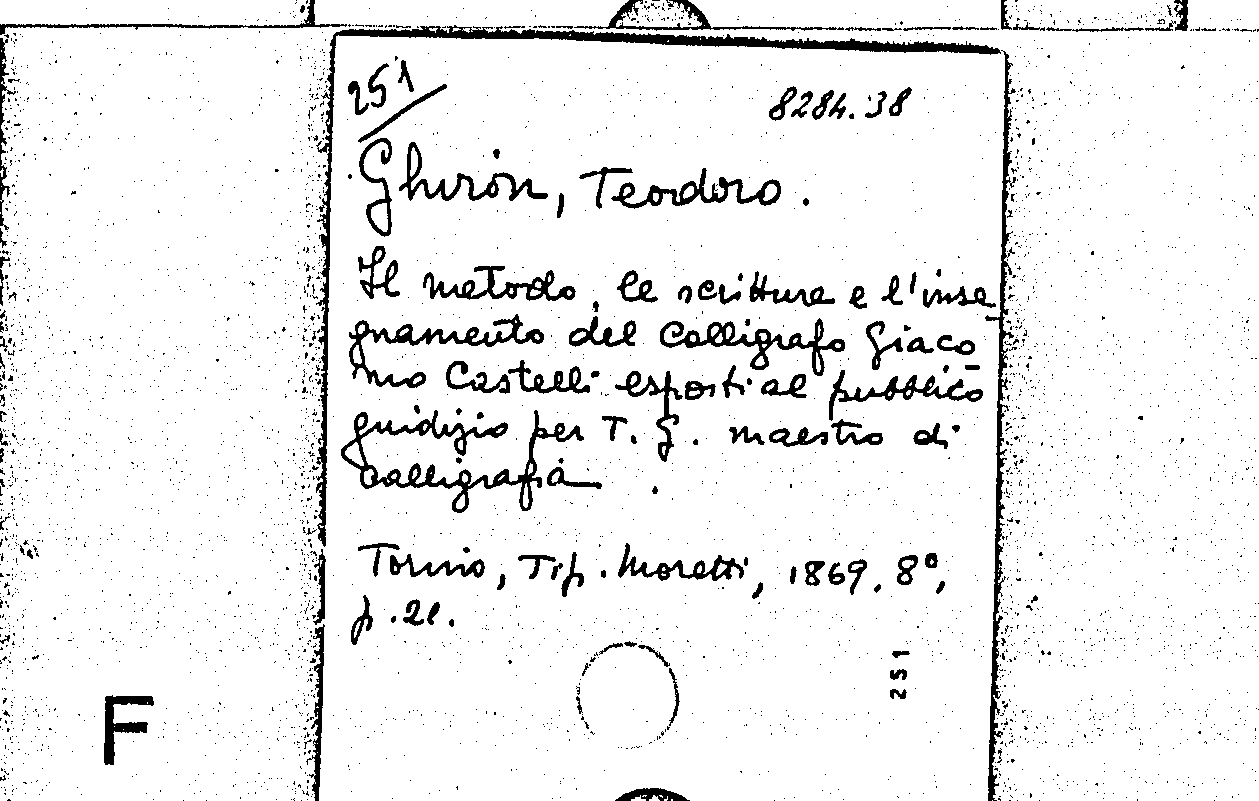 251
8284.38
Ghiron, Teodoro.
Il metodo, le scritture e l'inse
gnamento del Calligrafo Giaco
mo Castelli esposti al pubblico
guidizio per T. G. maestro di
Calligrafia
Torino, Tip. Moretti, 1869, 8°,
p. 21.
251
F